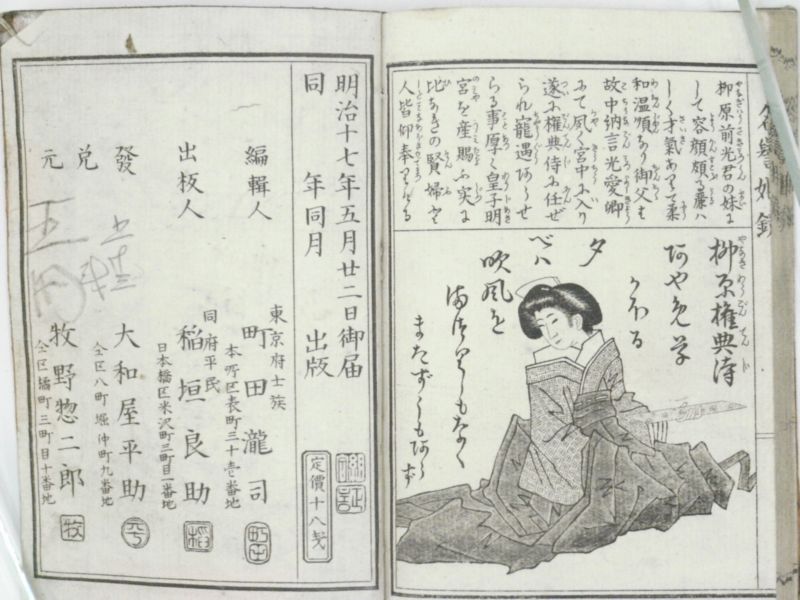 柳原前光君の妹に
して容顔頗る麗ハ
しく才氣あつて柔
和温順なり御父も
故中納言光愛卿
にて夙く宮中に入り
遂に権典侍に任ぜ
られ寵遇あらせ
らる事厚く皇子明
宮を産賜ふ実に
比なきの賢婦と
人皆仰奉りける
柳原権典侍
あやめ草
かほる
夕
べハ
吹風を
またずしもあらず
明治十七年五月廿二日御届
同 年同月 出版
編輯人
東京府士族
町田瀧司
本所区表町三十壱番地
出板人
同府平民
稲垣良助
日本橋区米沢町三町目一番地
發
大和屋平助
仝区八町堀仲町九番地
兌
元
牧野惣二郎
仝区橘町三町目十番地
定價十八戋
牧